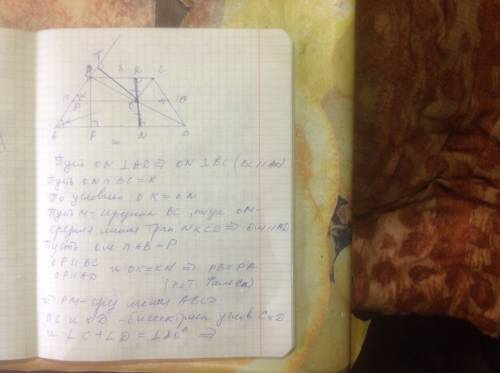 Пусть ON ⊥ AD ⇒ ON ⊥ BC (BC || AD)
Пусть ON ∩ BC = K
По условию OK = ON
Пусть M - середина BC, тогда OM -
средняя линия трап NKCD ⇒ OM || AD
Пусть OM ∩ AB = P
OP || BC
OP || AD и OK = KN ⇒ PB = PA
(по т. Фалеса)
⇒ PM - сред линия ABCD
OC и OD - биссектрисы углов C и D
и ∠C + ∠D = 180° ⇒